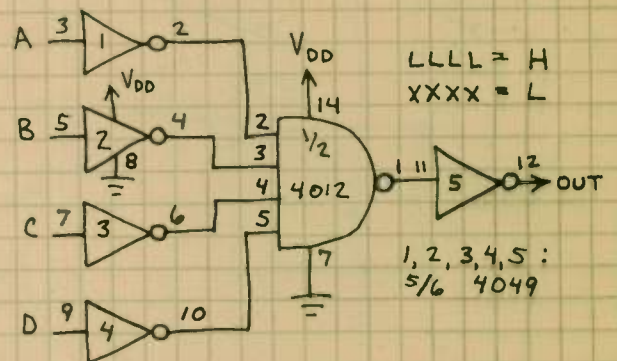 A 3 1 2
B 5 2 4 V_DD 8
C 7 3 6
D 9 4 10
V_DD
14
2 1/2
3
4 4012
5
7
1 11 5 12 OUT
LLLL = H
XXXX = L
1, 2, 3, 4, 5 :
5/6 4049